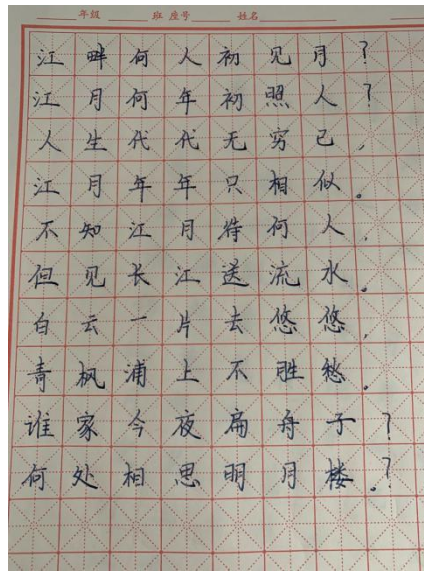 年级 班 座号 姓名
江畔何人初见月?
江月何年初照人?
人生代代无穷已,
江月年年只相似。
不知江月待何人,
但见长江送流水。
白云一片去悠悠,
青枫浦上不胜愁。
谁家今夜扁舟子?
何处相思明月楼。?